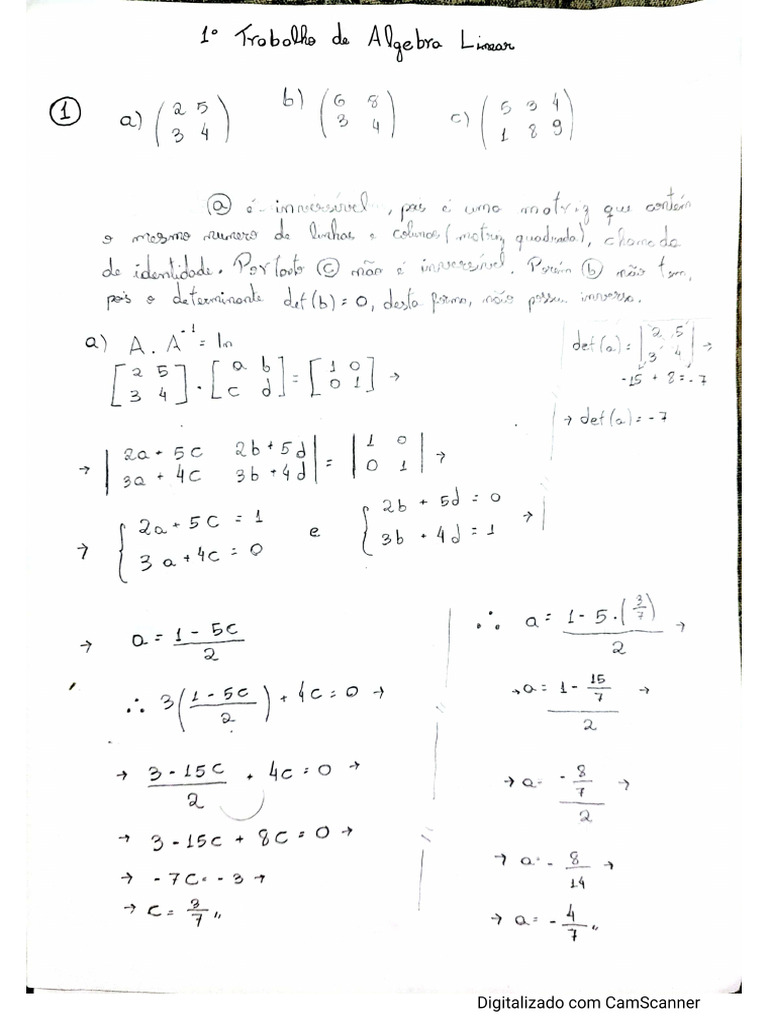 1º Trabalho de Algebra Linear
① a) (2 5 / 3 4) b) (6 8 / 3 4) c) (5 3 4 / 1 8 9)
ⓐ é inversível, pois é uma matriz que contém
o mesmo numero de linhas e colunas (matriz quadrada), chamada
de identidade. Portanto ⓒ não é inversível. Porém ⓑ não tem,
pois o determinante det(b) = 0, desta forma, não possui inversa.
a) A . A⁻¹ = In
[2 5 / 3 4] . [a b / c d] = [1 0 / 0 1] →
det(a) = |2 5 / 3 4| →
-15 + 8 = -7
→ det(a) = -7
→ |2a + 5c 2b + 5d / 3a + 4c 3b + 4d| = |1 0 / 0 1| →
→ { 2a + 5c = 1 / 3a + 4c = 0 e { 2b + 5d = 0 / 3b + 4d = 1 →
→ a = (1 - 5c)/2
∴ 3((1 - 5c)/2) + 4c = 0 →
→ (3 - 15c)/2 + 4c = 0 →
→ 3 - 15c + 8c = 0 →
→ -7c = -3 →
→ c = 3/7 ,,
∴ a = (1 - 5 . (3/7))/2 →
→ a = (1 - 15/7)/2 →
→ a = (-8/7)/2 →
→ a = -8/14 →
→ a = -4/7 ,,
Digitalizado com CamScanner